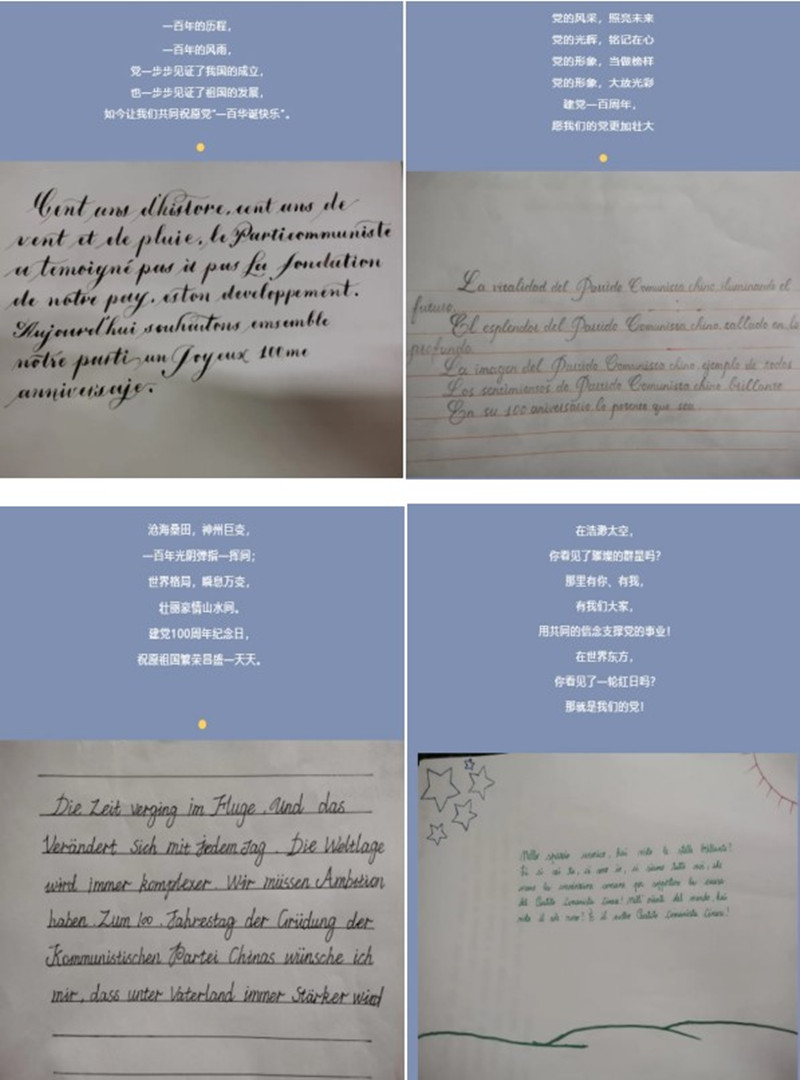 一百年的历程，
一百年的风雨，
党一步步见证了我国的成立，
也一步步见证了祖国的发展，
如今让我们共同祝愿党“一百华诞快乐”。
Cent ans d'histore, cent ans de
vent et de pluie, le Particommuniste
a temoigné pas à pas La fondation
de notre pay, eston developpement.
Aujourd'hui souhaitons ensemble
notre parti un Joyeux 100me
anniversaje.
党的风采，照亮未来
党的光辉，铭记在心
党的形象，当做榜样
党的形象，大放光彩
建党一百周年，
愿我们的党更加壮大
La vitalidad del Partido Comunista chino, iluminando el
futuro.
El esplendor del Partido Comunista chino, tallado en lo
profundo.
La imagen del Partido Comunista chino, ejemplo de todos
Los sentimientos de Partido Comunista chino brillante
En su 100 aniversario, le que sea
沧海桑田，神州巨变，
一百年光阴弹指一挥间；
世界格局，瞬息万变，
壮丽豪情山水间。
建党100周年纪念日，
祝愿祖国繁荣昌盛一天天。
Die Zeit verging im Fluge. Und das
Verändert sich mit jedem Tag. Die Weltlage
wird immer komplexer. Wir müssen Ambition
haben. Zum 100. Jahrestag der Grüdung der
Kommunistischen Partei Chinas wünsche ich
mir, dass unter Vaterland immer Stärker wird
在浩渺太空，
你看见了璀璨的群星吗？
那里有你、有我，
有我们大家，
用共同的信念支撑党的事业！
在世界东方，
你看见了一轮红日吗？
那就是我们的党！
Nello spazio cosmico, hai visto le stelle brillanti?
Lì ci sei tu, ci sono io, ci siamo tutti noi, che
del Partito Comunista Cinese! Nell' oriente del mondo, hai
visto il sole rosso? È il nostro Partito Comunista Cinese!